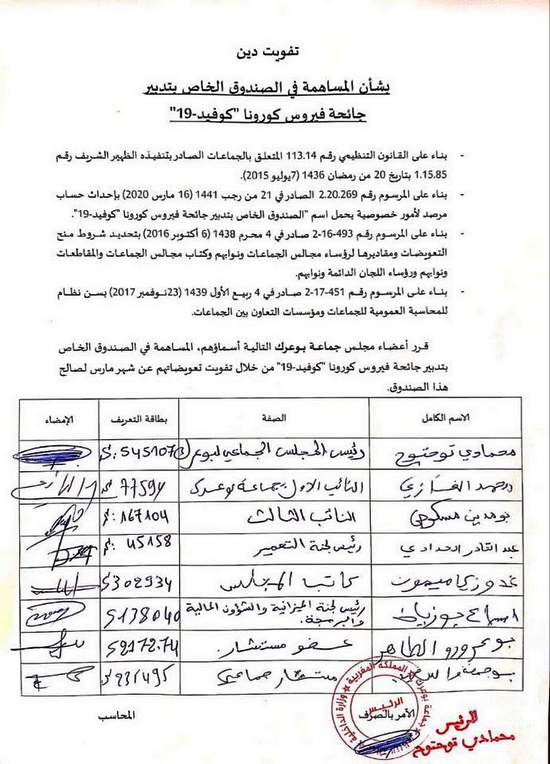 تفويت دين
بشأن المساهمة في الصندوق الخاص بتدبير
جائحة فيروس كورونا "كوفيد-19"
- بناء على القانون التنظيمي رقم 113.14 المتعلق بالجماعات الصادر بتنفيذه الظهير الشريف رقم
1.15.85 بتاريخ 20 من رمضان 1436 (7يوليو 2015).
- بناء على المرسوم رقم 2.20.269 الصادر في 21 من رجب 1441 (16 مارس 2020) بإحداث حساب
مرصد لأمور خصوصية يحمل اسم "الصندوق الخاص بتدبير جائحة فيروس كورونا "كوفيد-19".
- بناء على المرسوم رقم 493-16-2 صادر في 4 محرم 1438 (6 أكتوبر 2016) بتحديد شروط منح
التعويضات ومقاديرها لرؤساء مجالس الجماعات ونوابهم وكتاب مجالس الجماعات والمقاطعات
ونوابهم ورؤساء اللجان الدائمة ونوابهم.
- بناء على المرسوم رقم 451-17-2 صادر في 4 ربيع الأول 1439 (23نوفمبر 2017) بسن نظام
للمحاسبة العمومية للجماعات ومؤسسات التعاون بين الجماعات.
قرر أعضاء مجلس جماعة بوعرك التالية أسماؤهم، المساهمة في الصندوق الخاص
بتدبير جائحة فيروس كورونا "كوفيد-19" من خلال تفويت تعويضاتهم عن شهر مارس لصالح
هذا الصندوق.
الاسم الكامل الصفة بطاقة التعريف الإمضاء
محمادي توحتوح رئيس المجلس الجماعي لبوعرك
محمد الغازي النائب الاول بجماعة بوعرك
بومدين النائب الثالث S: 167104
عبد القادر رئيس لجنة التعمير S: 45158
ميمون كاتب المجلس S302934
رئيس لجنة الميزانية والشؤون المالية والبرمجة. S138040
الطاهر عضو مستشار.
مستشار جماعي
الآمر بالصرف المحاسب
الرئيس
محمادي توحتوح
المملكة المغربية
وزارة الداخلية
الرئيس